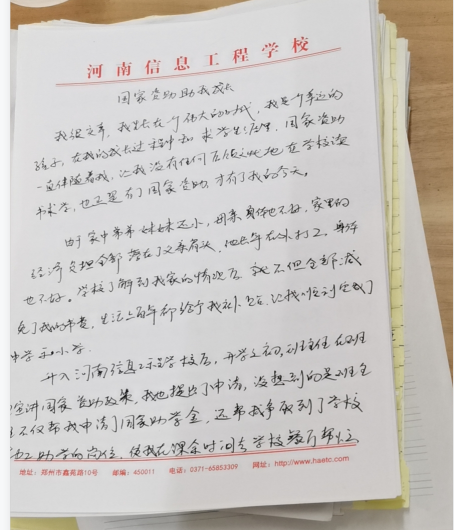 河南信息工程学校
国家资助助我成长
我很幸幸，我生长在一个伟大的时代，我是个幸运的
孩子，在我的成长过程中和求学生活里，国家资助
一直伴随着我，让我没有任何后顾之忧地在学校读
书求学，也正是有了国家资助，才有了我的今天。
由于家中弟弟妹妹还小，母亲身体也不好，家里的
经济负担全部落在了父亲肩头，他长年在外打工，身体
也不好。学校了解到我家的情况后，就不但全部减
免了我的学费，生活上每年都给予我补贴，让我顺利完成了
中学和小学.
升入河南信息工程学校后，开学之初，班主任在班
宣讲国家资助政策，我也提出了申请，没想到的是班主
不仅帮我申请了国家助学金，还帮我争取到了学校
勤工助学的岗位，使我在课余时间去学校餐厅帮忙
地址：郑州市鑫苑路10号 邮编：450011 电话：0371-65853309 网址：http://www.haetc.com